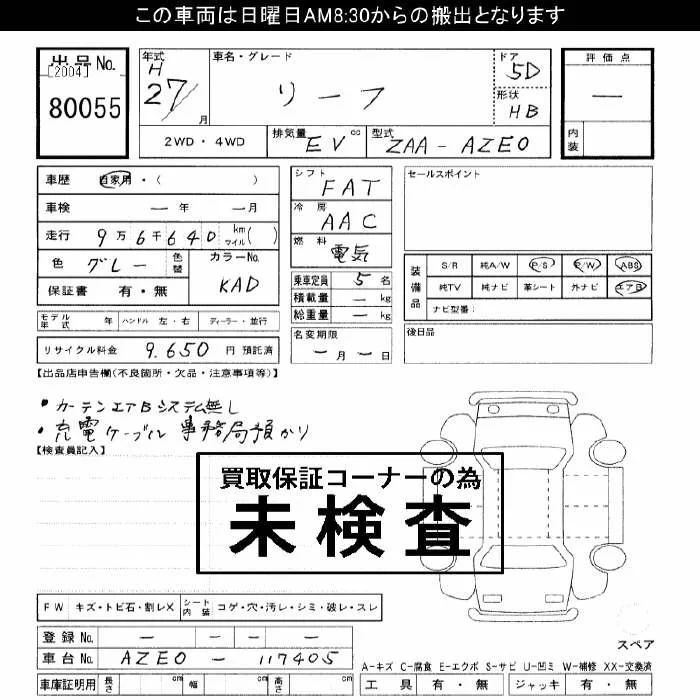 この車両は日曜日AM8:30からの搬出となります
出品No.
[2004]
80055
年式 車名・グレード ドア 評価点
H 27 月 リーフ 5D ー
形状 HB
内装
2WD・4WD 排気量 EV cc 型式 ZAA-AZE0
車歴 自家用・( )
車検 ー年 ー月
走行 9万6千640 km マイル( )
色 グレー 色替 カラーNo. KAD
保証書 有・無
シフト FAT
冷房 AAC
燃料 電気
乗車定員 5名
積載量 ー kg
総重量 ー kg
セールスポイント
装備品 S/R 純A/W P/S P/W ABS
純TV 純ナビ 革シート 外ナビ エアB
ナビ型番:
モデル年式 年 ハンドル 左・右 ディーラー・並行
名変期限 ー月ー日
後日品
リサイクル料金 9,650 円 預託済
【出品店申告欄(不良箇所・欠品・注意事項等)】
・カーテンエアBシステム無し
・充電ケーブル 事務局預かり
【検査員記入】
買取保証コーナーの為
未検査
FW キズ・トビ石・割レX シート内装 コゲ・穴・汚レ・シミ・破レ・スレ
登録No. ー ー
車台No. AZE0 - 117405
スペア
A-キズ C-腐食 E-エクボ S-サビ U-凹ミ W-補修 XX-交換済
車庫証明用 長さ cm 幅 cm 高さ cm 工具 有・無 ジャッキ 有・無